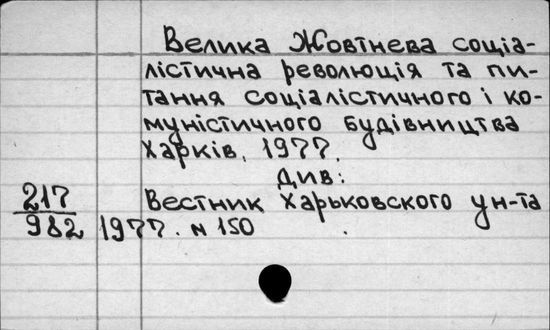 Велика Жовтнева соціа-
лістична революція та пи-
тання соціалістичного і ко-
муністичного будівництва
Харків, 1977.
див:
217 Вестник Харьковского ун-та
982 1977. N 150